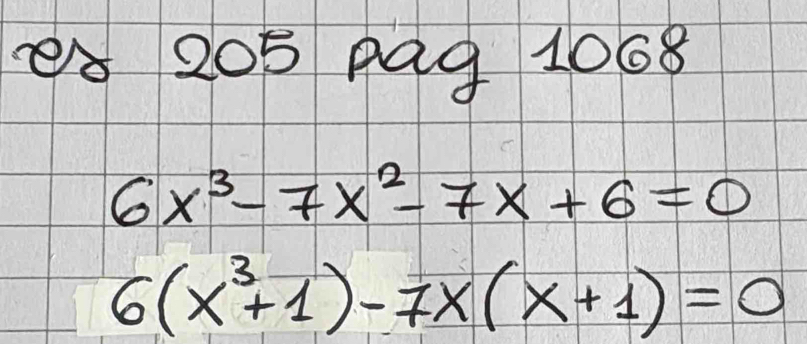 es 205 pag 1068
6x³-7x²-7x+6=0
6(x³+1)-7x(x+1)=0